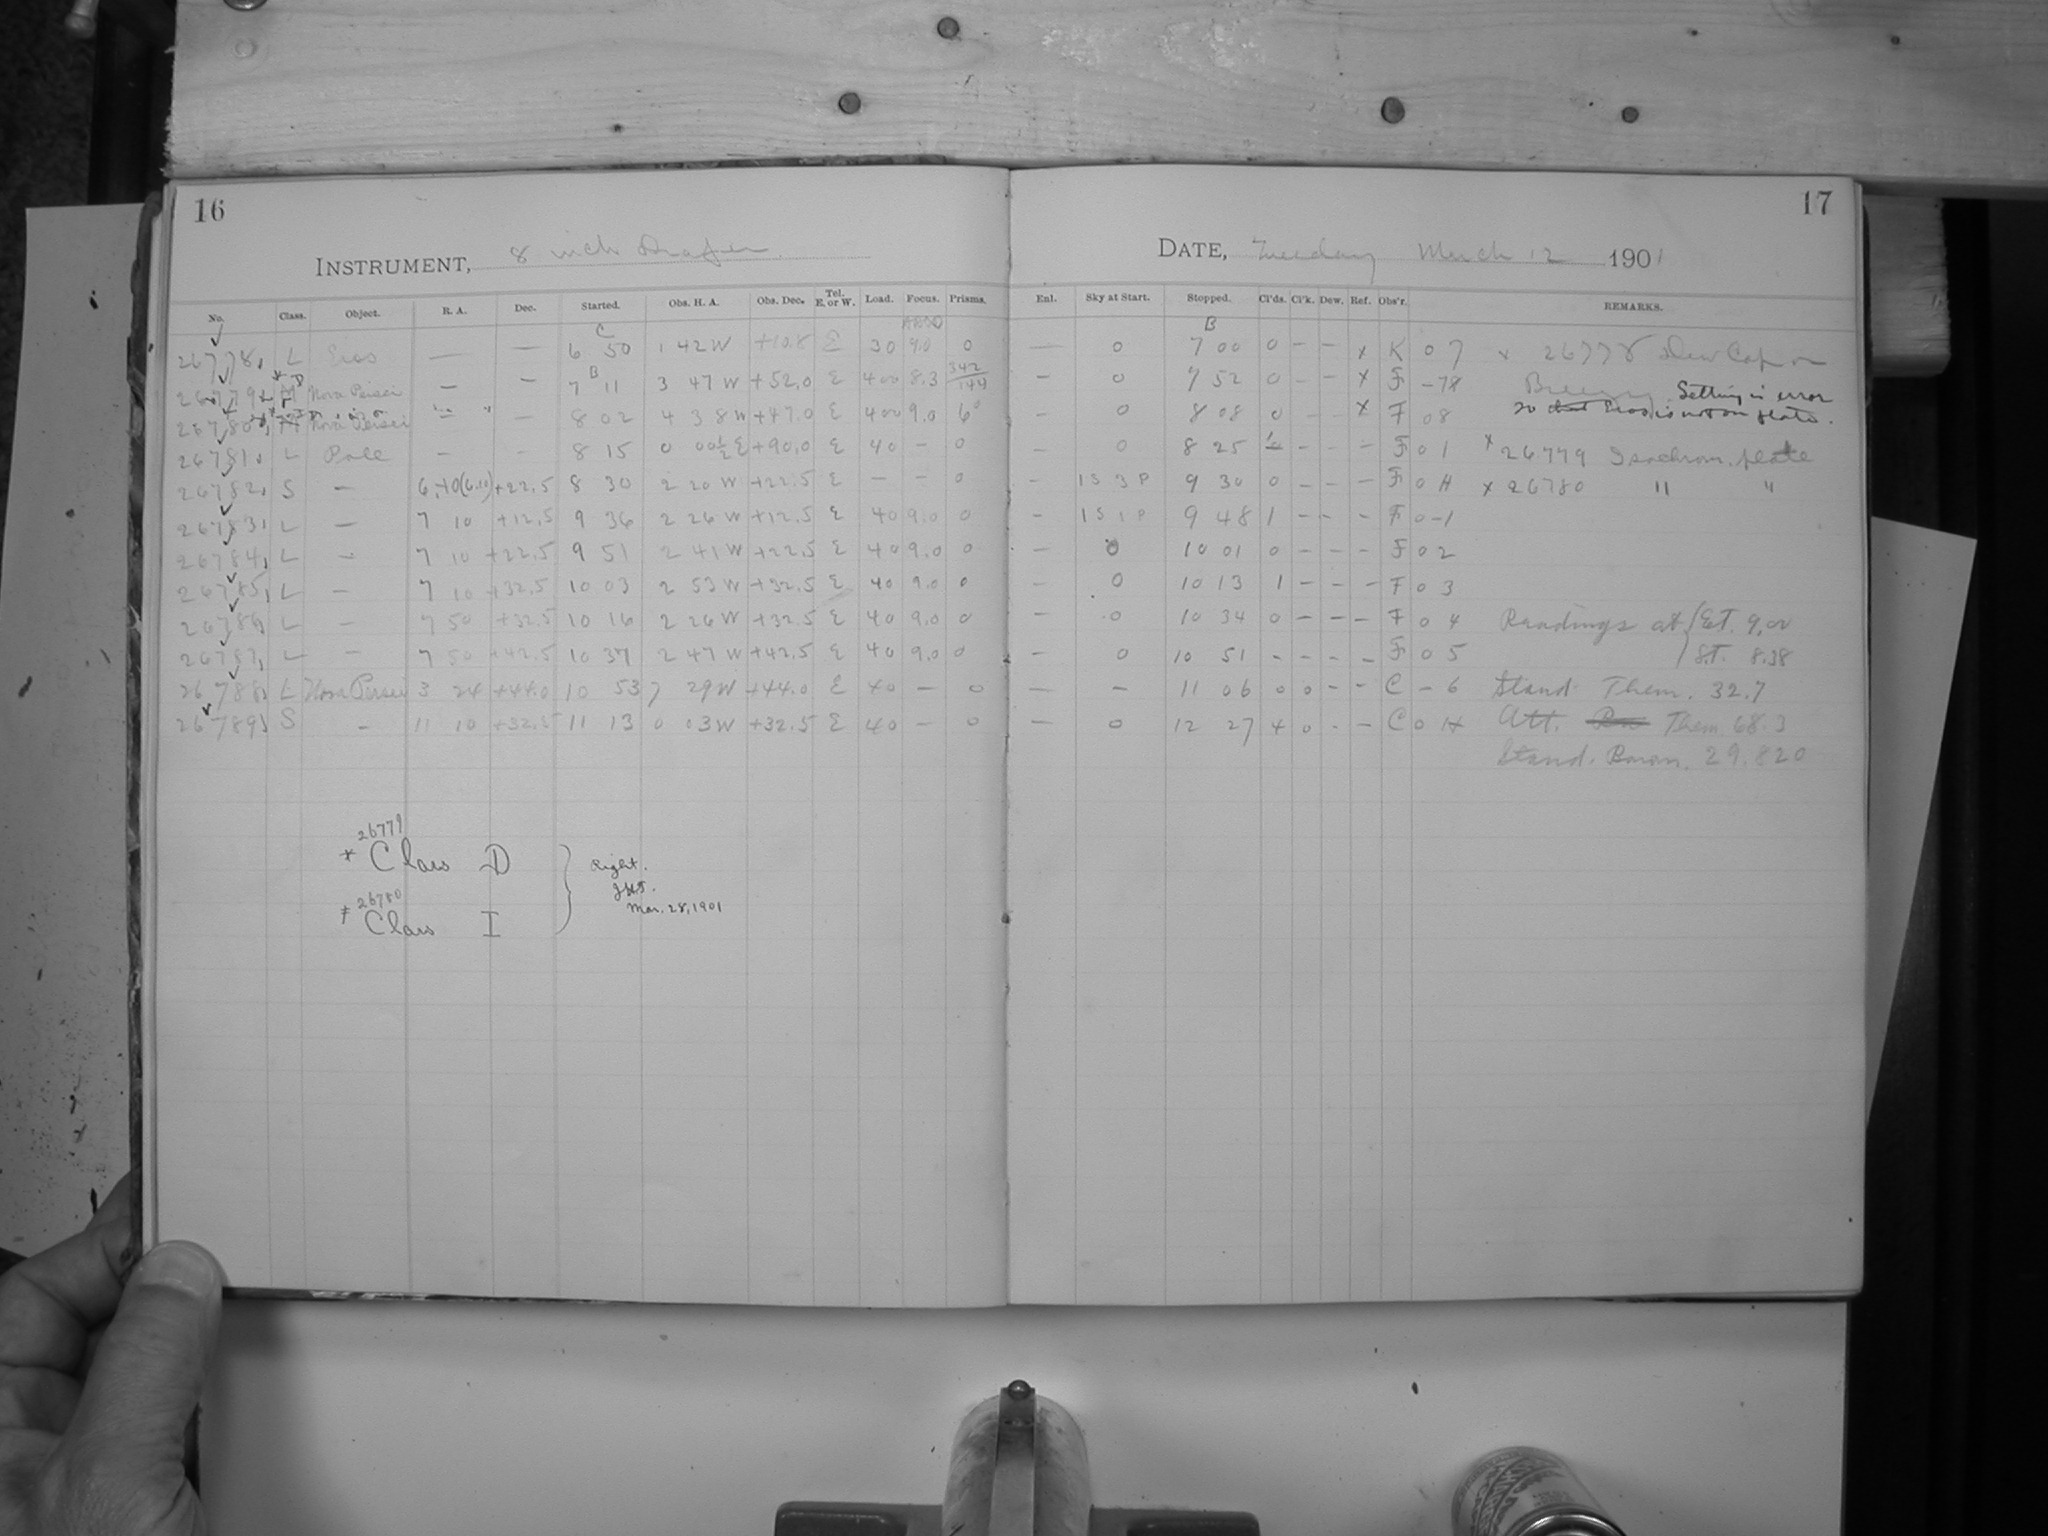 16
INSTRUMENT, 8 inch Draper.
No. Class. Object. R. A. Dec. Started. Obs. H. A. Obs. Dec. Tel. E. or W. Load. Focus. Prisms.
C
26778, L Eros — — 6 50 1 42 W +10.8 E 30 9.0 0
B
26779, Nova Persei — — 7 11 3 47 W +52.0 E 400 8.3 342/144
26780, Nova Persei " " — 8 02 4 38 W +47.0 E 400 9.0 6°
26781, L Pole — — 8 15 0 00½ E +90.0 E 40 — 0
26782, S — 6.10 (6.10) +22.5 8 30 2 20 W +22.5 E — — 0
26783, L — 7 10 +12.5 9 36 2 26 W +12.5 E 40 9.0 0
26784, L — 7 10 +22.5 9 51 2 41 W +22.5 E 40 9.0 0
26785, L — 7 10 +32.5 10 03 2 53 W +32.5 E 40 9.0 0
26786, L — 7 50 +32.5 10 16 2 26 W +32.5 E 40 9.0 0
26787, L — 7 50 +42.5 10 37 2 47 W +42.5 E 40 9.0 0
26788, L Nova Persei 3 24 +44.0 10 53 7 29 W +44.0 E 40 — 0
26789, S — 11 10 +32.5 11 13 0 03 W +32.5 E 40 — 0
26779
* Class D
26780
‡ Class I
} Right.
Mar. 28, 1901
17
DATE, Tuesday March 12 1901
Enl. Sky at Start. Stopped. Cl'ds. Cl'k. Dew. Ref. Obs'r. REMARKS.
B
— 0 7 00 0 – – x K 0 7 x 26778 Dew Cap on
— 0 7 52 0 – – x F – 78 Setting in error
— 0 8 08 0 – – x F 0 8 so that Eros is not on plate.
0 8 25 – – – F 0 1 x 26779 Isochrom. plate
– 1 S 3 P 9 30 0 – – – F 0 H x 26780 " "
– 1 S 1 P 9 48 1 – – – F 0 –1
— 0 10 01 0 – – – F 0 2
— 0 10 13 1 – – – F 0 3
— 0 10 34 0 – – – F 0 4 Readings at { E.T. 9.00
— 0 10 51 – – – – F 0 5 S.T. 8.38
— – 11 06 0 0 – – C – 6 Stand. Them. 32.7
— 0 12 27 4 0 – – C 0 H Att. Them 68.3
Stand. Barom. 29.820